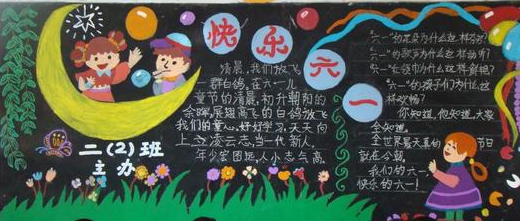 快乐六一
清晨,我们放飞
群白鸽,在六一儿
童节的清晨,初升朝阳的
余晖,展翅高飞的白鸽放飞
我们的童心,好好学习,天天向
上,立凌云志,当一代新人,
年少宏图远,人小志气高
二(2)班
主办
"六一"的花朵为什么这样
"六一"的歌声为什么这样动听?
"六一"的为什么这样鲜艳?
"六一"的孩子们为什么这
样欢畅?
你知道,他知道,大家
全知道。
全世界最天真的节日
就在今朝
我们的六一
快乐的六一!